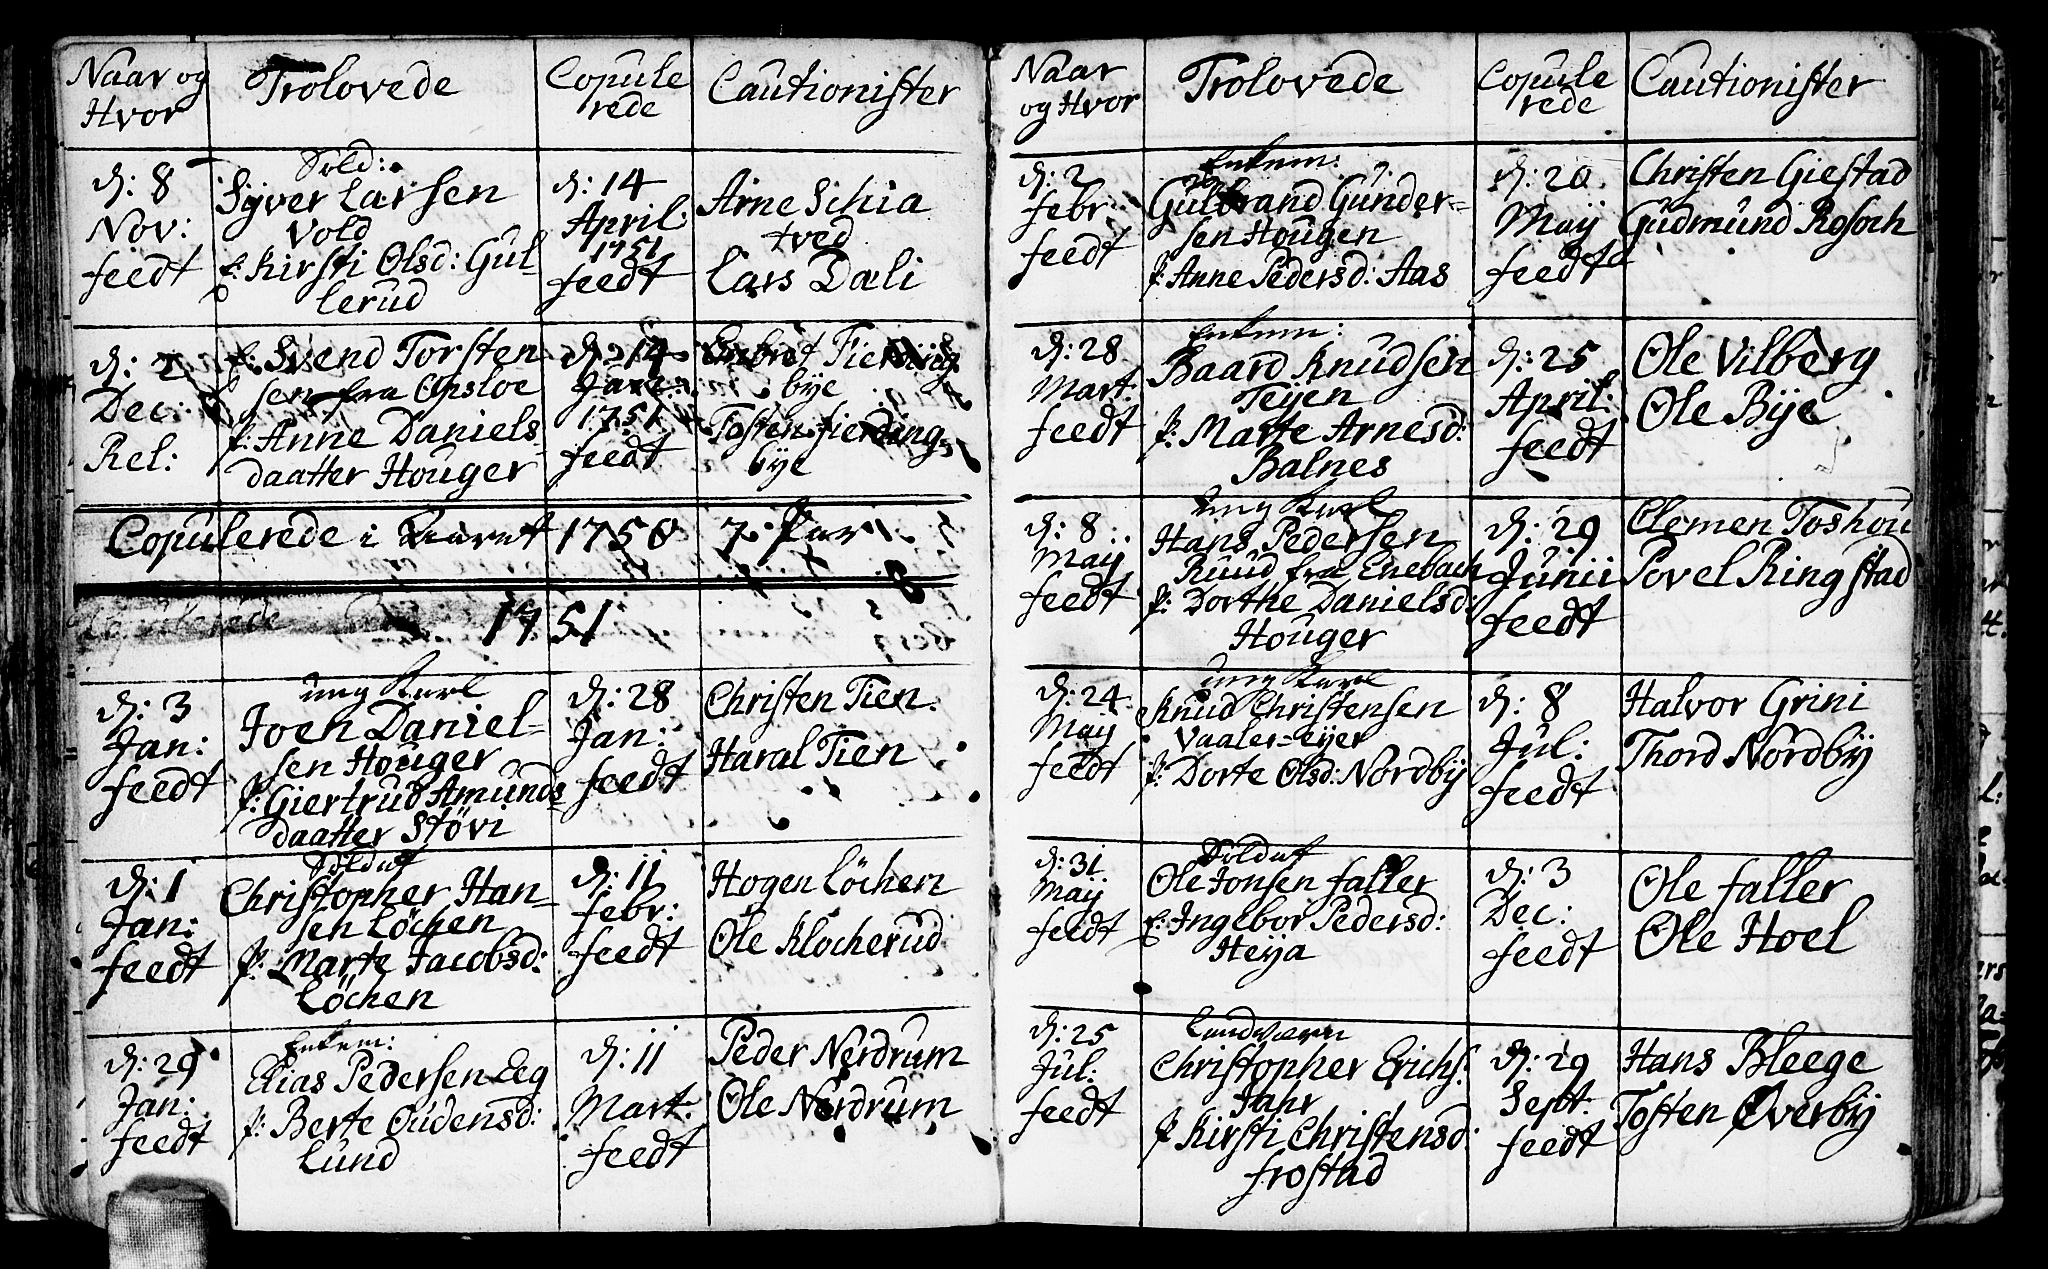 Naar og
Hvor
Trolovede
Copule
rede
Cautionister
d: 8
Nov:
feedt
Sold:
Syver Larsen
Vold
E: Kirsti Olsd: Gul-
lerud
d: 14
April
1751
feedt
Arne Schia
tved
Lars Dæli
d: 2
Dec:
Rel:
E: Svend Torsten
sen fra Opsloe
P: Anne Daniels-
daatter Houger
d: 14
Jan:
1751
feedt
Embret Fierding
bye
Tosten Fierding-
bye
Copulerede i Aaret 1750 7 Par
8
Copulerede i 1751
d: 3
Jan:
feedt
ung Karl
Joen Daniel-
sen Houger
P: Giertrud Amunds
daatter Støvi
d: 28
Jan:
feedt
Christen Tien
Haral Tien
d: 1
Jan:
feedt
Soldat
Christopher Han-
sen Löchen
P: Marte Jacobsd:
Löchen
d: 11
Febr:
feedt
Hogen Löchen
Ole Klocherud
d: 29
Jan:
feedt
Enkem:
Elias Pedersen Eeg
P: Berte Oudensd:
Lund
d: 11
Mart:
feedt
Peder Nerdrum
Ole Nordrum
Naar
og Hvor
Trolovede
Copule
rede
Cautionister
d: 2
Febr:
feedt
Enkem:
Gulbrand Gunder-
sen Hougen
P: Anne Pedersd: Aas
d: 20
Maÿ
feedt
Christen Giestad
Gudmund Rosoch
d: 28
Mart:
feedt
Enkem:
Baard Knudsen
Teÿen
P: Marte Arnesd:
Balnes
d: 25
April:
feedt
Ole Vilberg
Ole Bÿe
d: 8
Maÿ
feedt
ung Karl
Hans Pedersen
Ruud fra Enebach
P: Dorthe Danielsd:
Houger
d: 29
Junii
feedt
Clemen Toshou
Povel Ringstad
d: 24
Maÿ
feedt
ung Karl
Knud Christensen
Vaaler-eÿer
P: Dorte Olsd: Nordbÿ
d: 8
Jul:
feedt
Halvor Grini
Thord Nordbÿ
d: 31
Maÿ
feedt
Soldat
Ole Jonsen Faller
E: Ingebor Pedersd:
Heÿa
d: 3
Dec:
feedt
Ole Faller
Ole Hoel
d: 25
Jul:
feedt
Landværn
Christopher Erichs:
Jahr
P: Kirsti Christensd:
Frostad
d: 29
Sept:
feedt
Hans Bleege
Tosten Øverbÿ